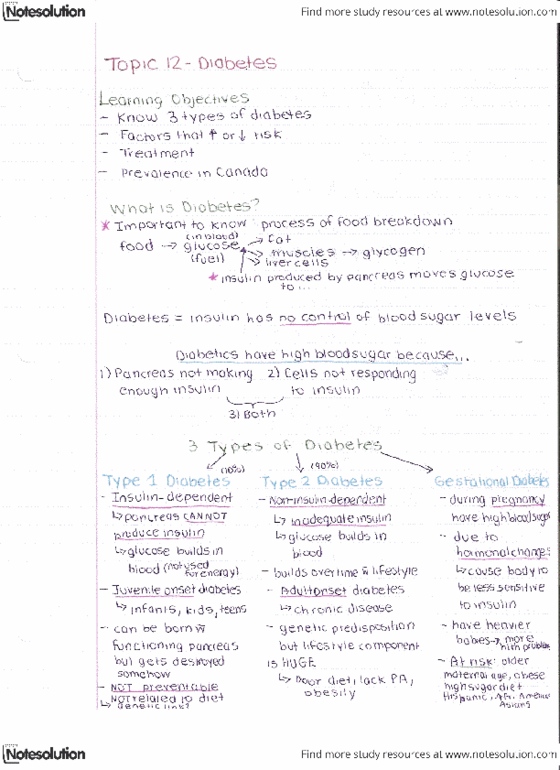 Notesolution
Find more study resources at www.notesolution.com
Topic 12 - Diabetes
Learning Objectives
- Know 3 types of diabetes
- Factors that ↑ or ↓ risk
- Treatment
- Prevalence in Canada
What is Diabetes?
* Important to know process of food breakdown
(in blood)
food → glucose → fat
(fuel) → muscles → glycogen
→ liver cells
* insulin produced by pancreas moves glucose
to...
Diabetes = insulin has no control of blood sugar levels
Diabetics have high blood sugar because...
1) Pancreas not making enough insulin
2) Cells not responding to insulin
3) Both
3 Types of Diabetes
(10%) (90%)
Type 1 Diabetes
- Insulin-dependent
↳ pancreas CANNOT
produce insulin
↳ glucose builds in
blood (not used
for energy)
- Juvenile onset diabetes
↳ infants, kids, teens
- can be born w
functioning pancreas
but gets destroyed
somehow
- NOT preventable
Not related to diet
↳ genetic link?
Type 2 Diabetes
- Non-insulin dependent
↳ inadequate insulin
↳ glucose builds in
blood
- builds overtime & lifestyle
- Adult onset diabetes
↳ chronic disease
- genetic predisposition
but lifestyle component
is HUGE
↳ poor diet, lack PA,
obesity
Gestational Diabetes
- during pregnancy
have high blood sugar
- due to
hormonal changes
↳ cause body to
be less sensitive
to insulin
- have heavier
babies → more
birth problems
- At risk: older
maternal age, obese
high sugar diet
Hispanic, Afr. American
Asians
Notesolution
Find more study resources at www.notesolution.com